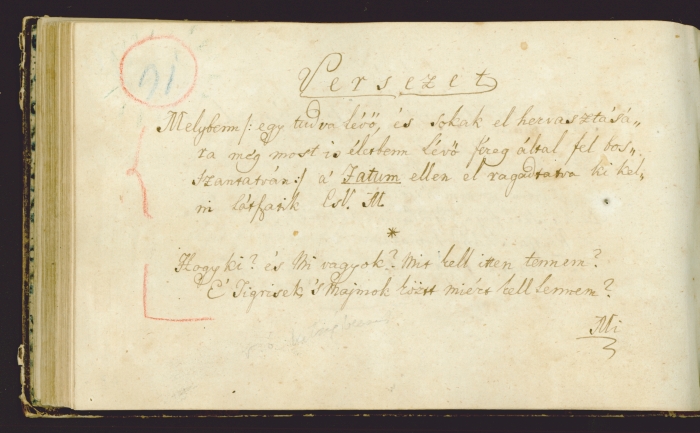 Versezet
Melybenn /: egy tudva lévő, és sokak el hervasztásá„
ra még most is életbenn lévő féreg által fel bos„
szantatván :/ a' Fatum ellen el ragadtatva ki kel„
ni látfatik Esv. M.
*
Hogy ki? és Mi vagyok? Mit kell itten tennem?
E' Tigrisek, 's Majmok köztt miért kell lennem?
Mi